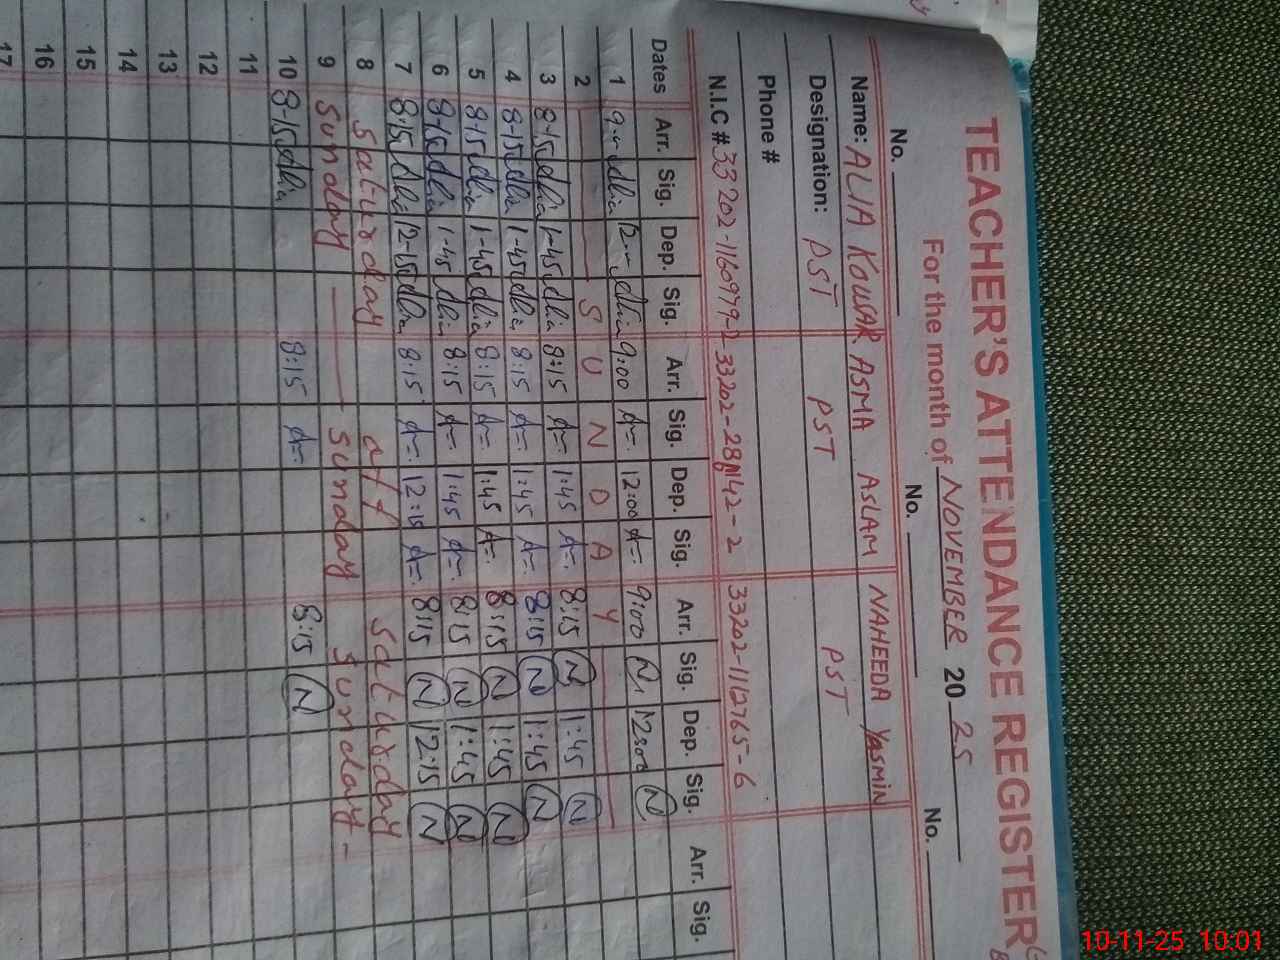 TEACHER'S ATTENDANCE REGISTER
For the month of NOVEMBER 20 25
No. No. No.
Name: ALIA KOUSAR ASMA ASLAM NAHEEDA YASMIN
Designation: PST PST PST
Phone #
N.I.C # 33202-1160979-2 33202-28 42-2 33202-1112765-6
Dates Arr. Sig. Dep. Sig. Arr. Sig. Dep. Sig. Arr. Sig. Dep. Sig. Arr. Sig.
1 9:00 12:00 9:00 N 12:00 N
2 S U N D A Y
3 8-15 1-45 8:15 1:45 8:15 N 1:45 N
4 8-15 1-45 8:15 1:45 8:15 N 1:45 N
5 8-15 1-45 8:15 1:45 8:15 N 1:45 N
6 8-15 1-45 8:15 1:45 8:15 N 1:45 N
7 8:15 12-15 8:15 12:15 8:15 N 12:15 N
8 Saturday off Saturday
9 Sunday sunday sunday
10 8-15 8:15 8:15 N
11
12
13
14
15
16
17
10-11-25 10:01